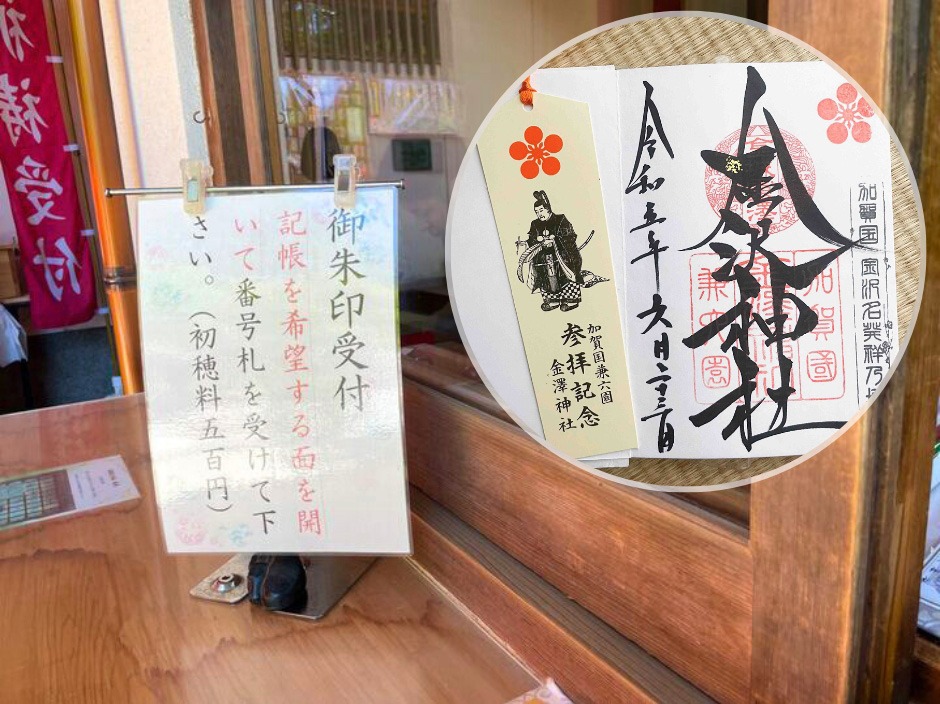 受付
御朱印受付
記帳を希望する面を開
いて番号札を受けて下
さい。(初穂料五百円)
加賀国兼六園
参拝記念
金澤神社
加賀国 金沢名発祥乃
金沢神社
加賀國
金澤神社
兼六園
令和五年六月二十三日